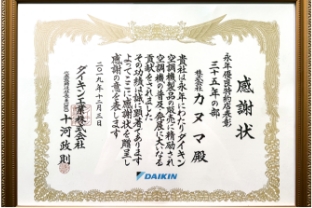 感謝状
永年優良特約店表彰
三十五年の部
株式会社 カヌマ 殿
貴社は永年にわたりダイキン
空調機製品の販売に精励され
空調機の普及発展に大いなる
貢献をされました
その功績は誠に顕著であります
よってここに感謝状を贈呈し
感謝の意を表します
二〇一九年十二月三日
ダイキン工業株式会社
十河政則
DAIKIN